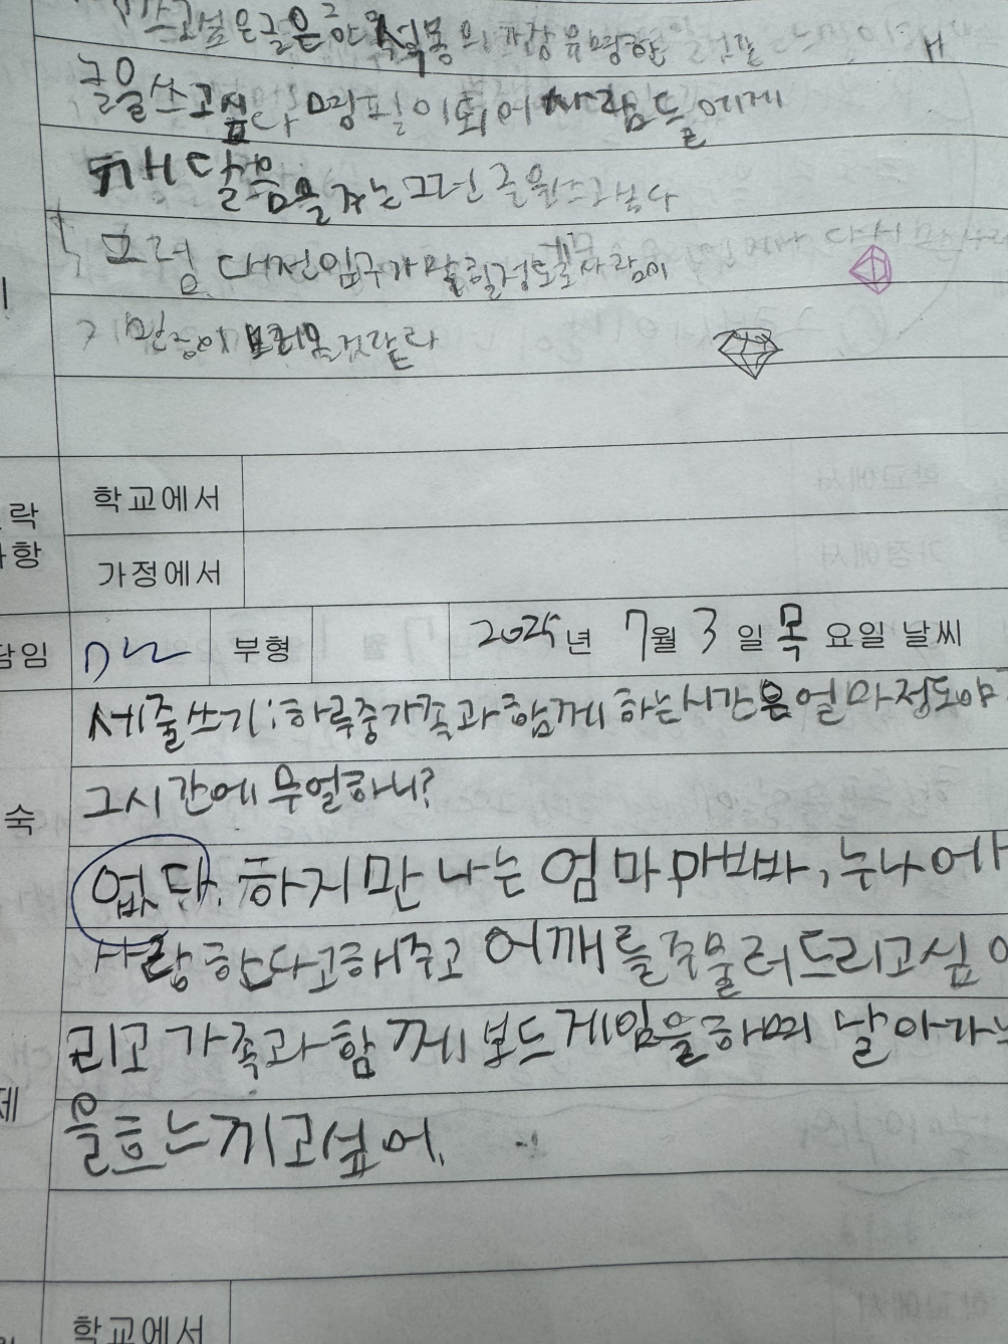 쓰고싶은글은 한석봉의 가장유명한
글을쓰고싶다 명필이되어 사람들에게
깨달음을 주는그런 글을쓰고싶다
그럼 대전입구가 막힐정도로 사람이
학교에서
락
항
가정에서
담임
부형
2025년 7월 3일 목요일 날씨
세줄쓰기:하루중가족과함께 하는시간은얼마정도야
그시간에 무얼하니?
숙
없다. 하지만 나는 엄마 아빠, 누나에
사랑한다고해주고 어깨를주물러드리고싶어
리고 가족과함께 보드게임을하며 날아가
제
을흐느끼고싶어.
학교에서